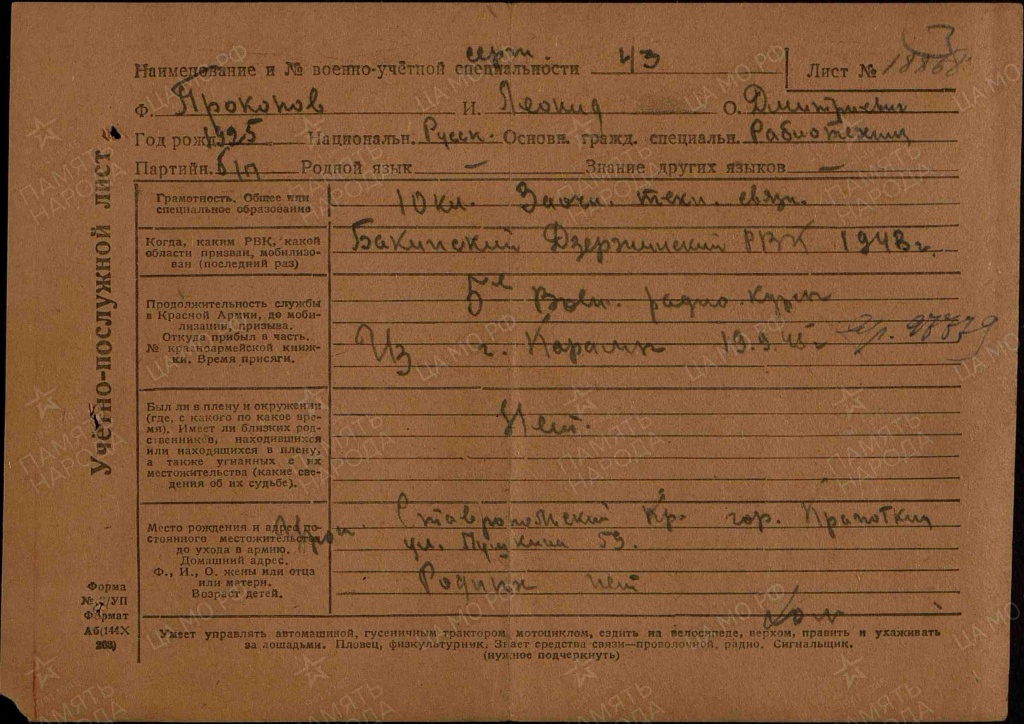 серж.
Наименование и № военно-учётной специальности 43 Лист № 18868
Ф. Прокопов И. Леонид О. Дмитриевич
Год рожд. 1925 Национальн. Русск. Основн. гражд. специальн. Радиотехник
Партийн. б/п Родной язык — Знание других языков —
Учётно-послужной лист
Грамотность. Общее или
специальное образование
10 кл. Заочн. техн. связи.
Когда, каким РВК, какой
области призван, мобилизо-
ван (последний раз)
Бакинский Дзержинский РВК 1943 г.
Продолжительность службы
в Красной Армии, до моби-
лизации, призыва.
Откуда прибыл в часть.
№ красноармейской книж-
ки. Время присяги.
5 Воен. радио курсы
Из г. 19.9.45 г
Был ли в плену и окружении
(где, с какого по какое вре-
мя). Имеет ли близких род-
ственников, находившихся
или находящихся в плену,
а также угнанных с их
местожительства (какие све-
дения об их судьбе).
Нет.
Место рождения и адрес по-
стоянного местожительства
до ухода в армию.
Домашний адрес.
Ф., И., О. жены или отца
или матери.
Возраст детей.
Ставропольский Кр. гор. Крапоткин
ул. Пушкина 53.
Родных нет
Форма
№ /УП
Формат
А6(144Х
203)
Умеет управлять автомашиной, гусеничным трактором, мотоциклом, ездить на велосипеде, верхом, править и ухаживать
за лошадьми. Пловец, физкультурник. Знает средства связи—проволочной, радио. Сигнальщик.
(нужное подчеркнуть)
ПАМЯТЬ НАРОДА
ЦА МО РФ